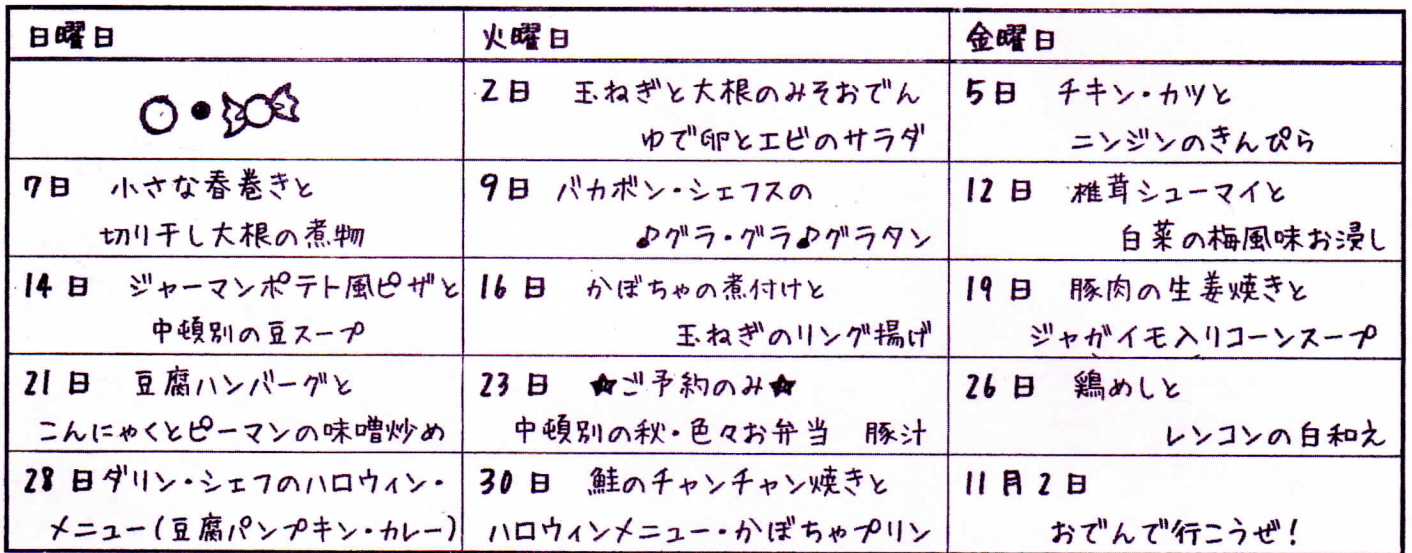 日曜日 火曜日 金曜日
2日 玉ねぎと大根のみそおでん
ゆで卵とエビのサラダ
5日 チキン・カツと
ニンジンのきんぴら
7日 小さな春巻きと
切り干し大根の煮物
9日 バカボン・シェフスの
♪グラ・グラ♪グラタン
12日 椎茸シューマイと
白菜の梅風味お浸し
14日 ジャーマンポテト風ピザと
中頓別の豆スープ
16日 かぼちゃの煮付けと
玉ねぎのリング揚げ
19日 豚肉の生姜焼きと
ジャガイモ入りコーンスープ
21日 豆腐ハンバーグと
こんにゃくとピーマンの味噌炒め
23日 ★ご予約のみ★
中頓別の秋・色々お弁当 豚汁
26日 鶏めしと
レンコンの白和え
28日ダリン・シェフのハロウィン・
メニュー(豆腐パンプキン・カレー)
30日 鮭のチャンチャン焼きと
ハロウィンメニュー・かぼちゃプリン
11月2日
おでんで行こうぜ!